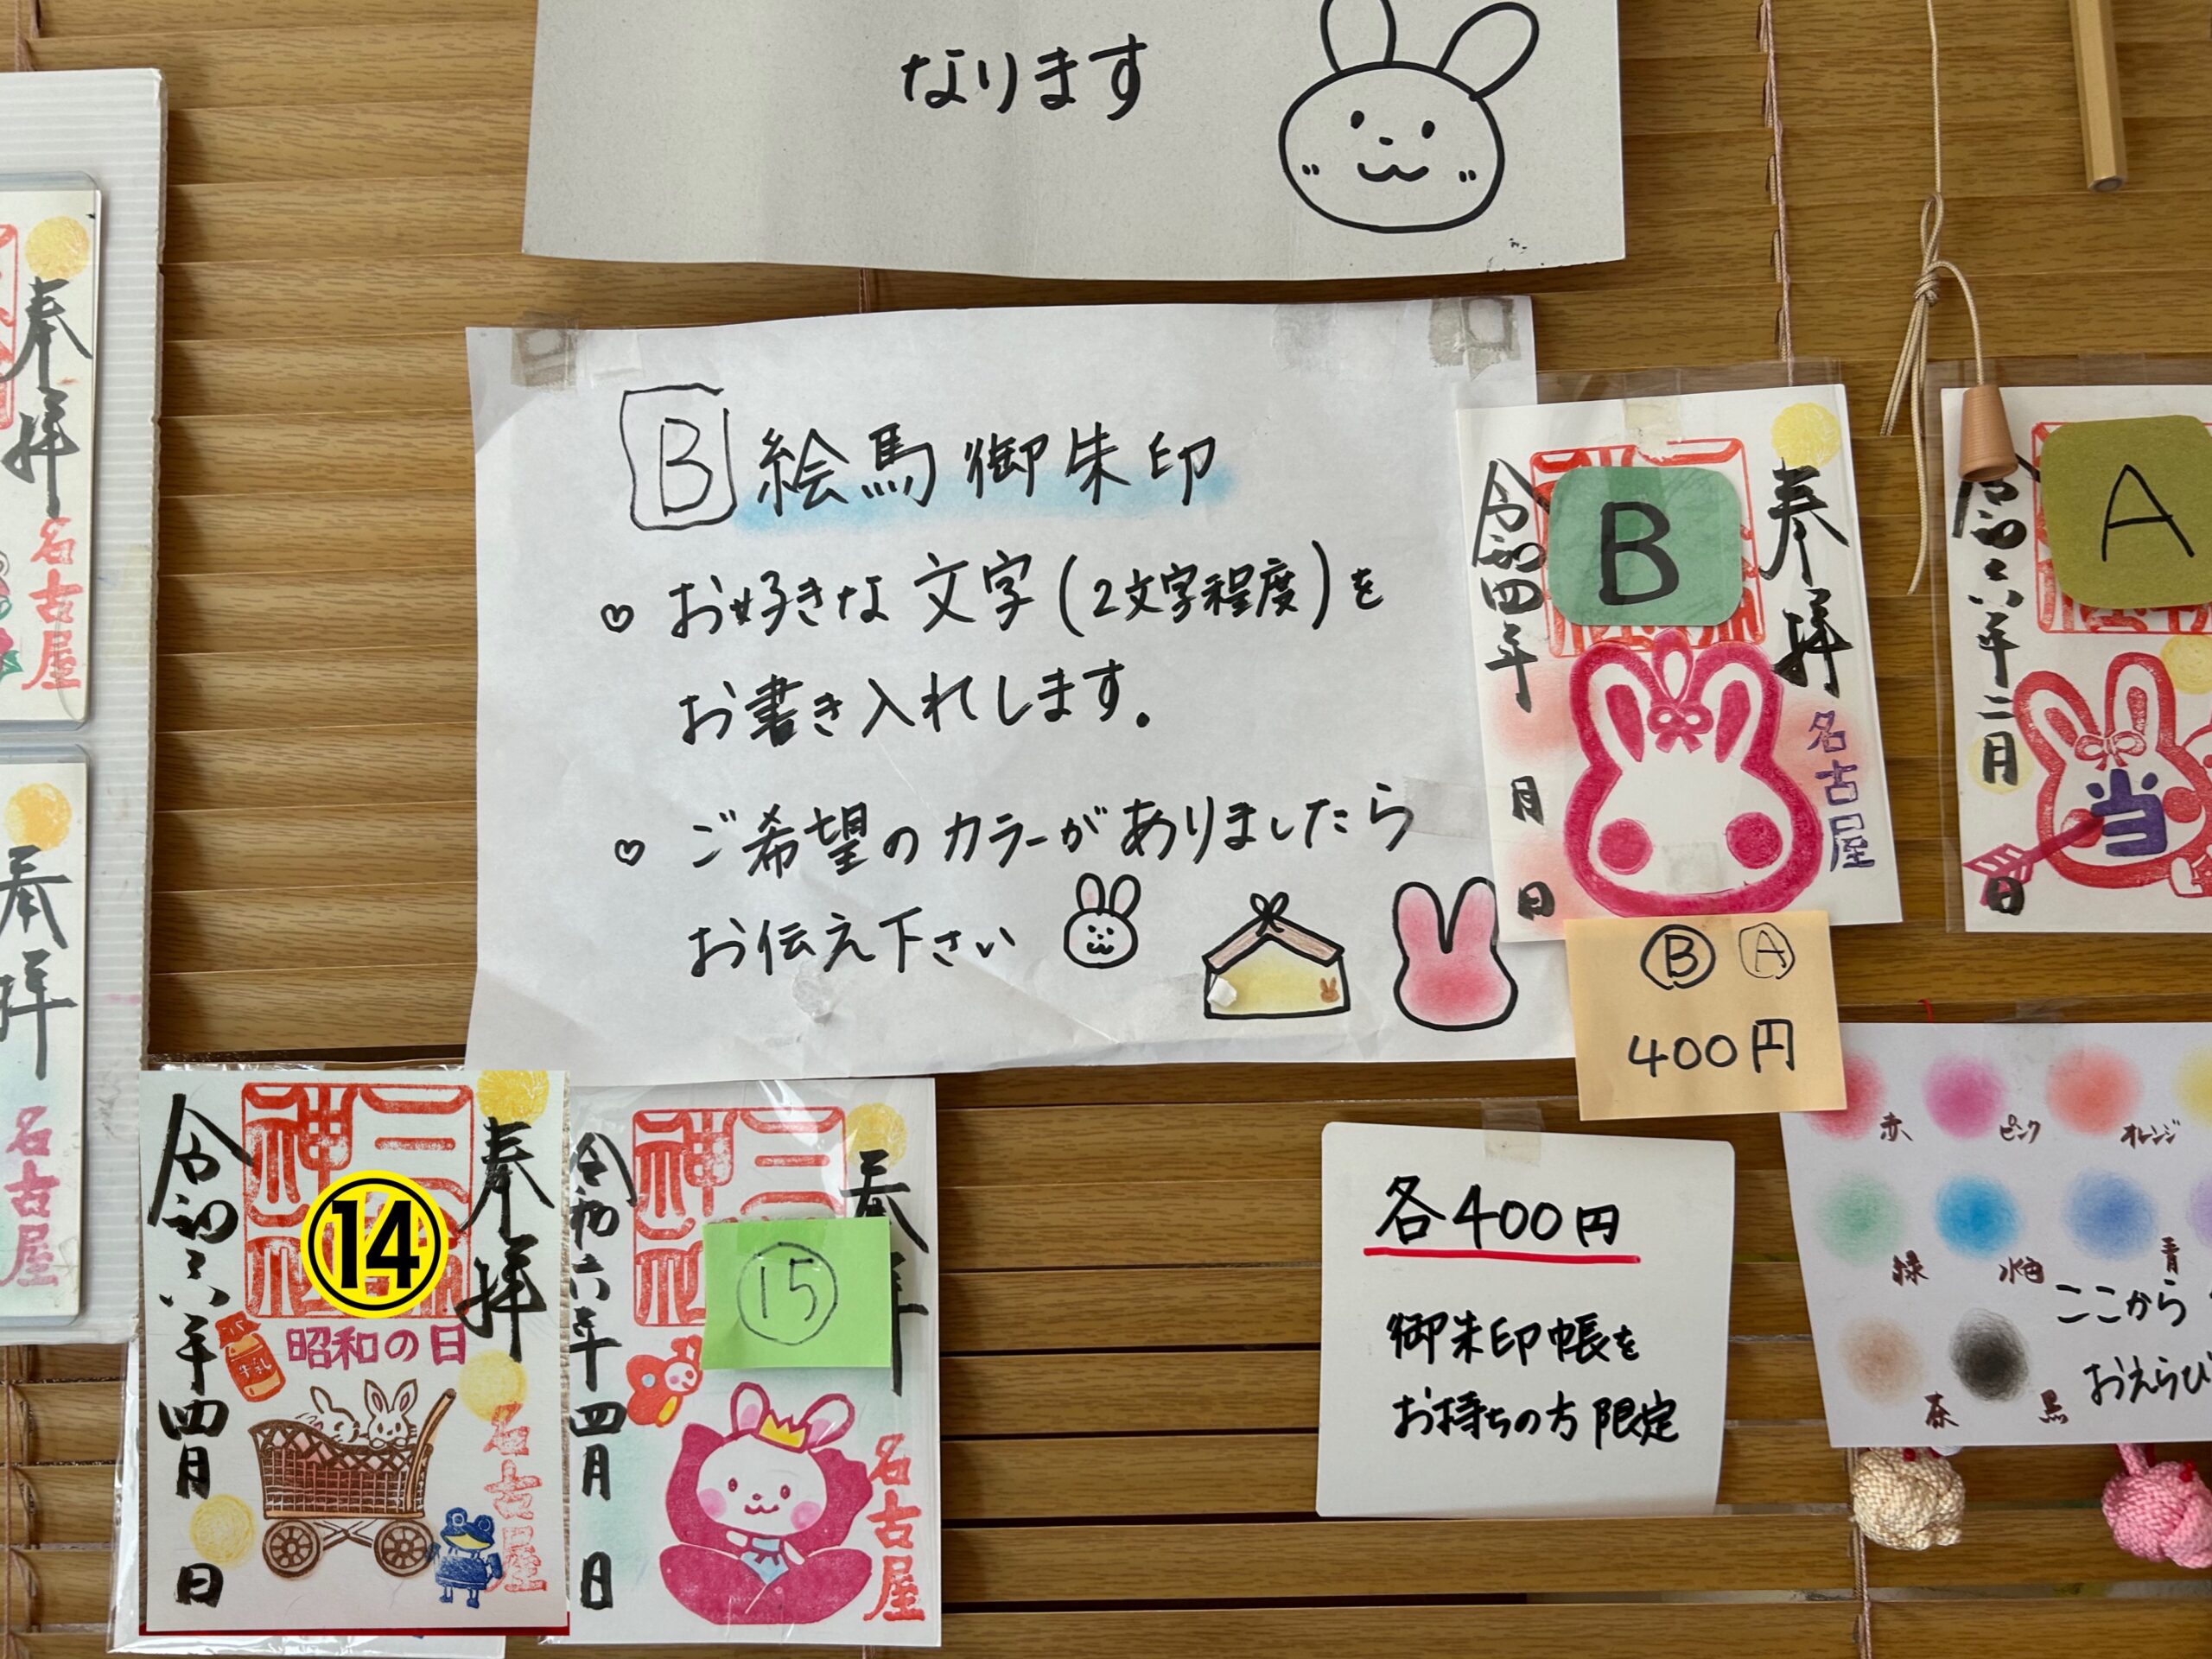 なります
B 絵馬御朱印
♡ お好きな文字(2文字程度)を
お書き入れします。
♡ ご希望のカラーがありましたら
お伝え下さい
奉拝
名古屋
奉拝
名古屋
B
奉拝
令和四年
月
日
名古屋
A
令和六年二月
日
当
Ⓑ Ⓐ
400円
赤
ピンク
オレンジ
緑
水色
青
茶
黒
ここから
おえらび
各400円
御朱印帳を
お持ちの方限定
奉拝
⑭
昭和の日
牛乳
令和六年四月
日
名古屋
奉拝
⑮
令和六年四月
日
名古屋